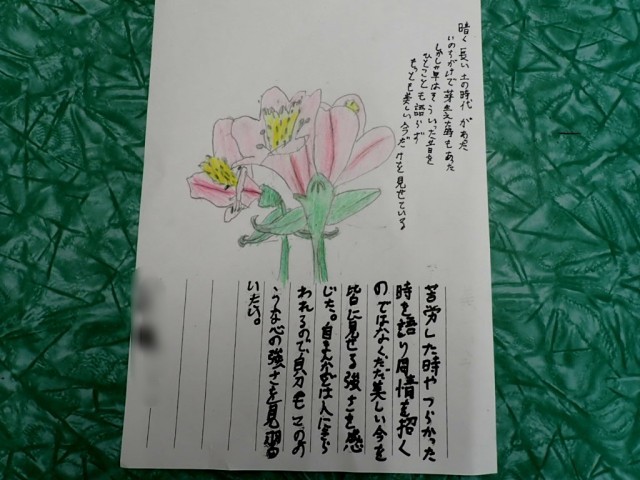 暗く長い土の時代があった
いのちがけで芽生えた時もあった
しかし草はそういった昔を
ひとことも語らず
もっとも美しい今だけを見せている
苦労した時やつらかった
時を語り同情を招く
のではなくただ美しい今を
皆に見せる強さを感
じた。自分は人に
われるので自分もこのよ
うな心の強さを見習
いたい。